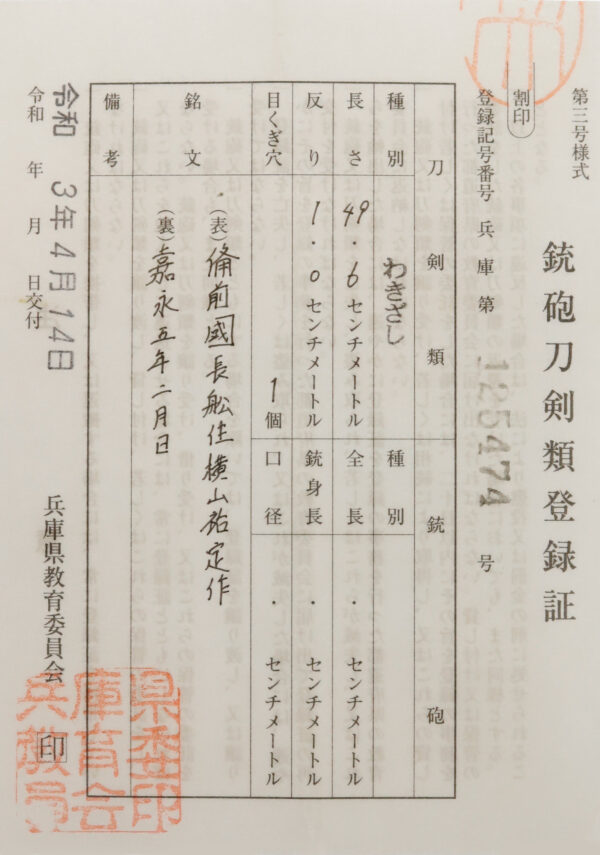 第三号様式
銃砲刀剣類登録証
割印
登録記号番号 兵庫第 125474 号
刀剣類 銃砲
種別 わきざし 種別
長さ 49.6センチメートル 全長 ・ センチメートル
反り 1.0センチメートル 銃身長 ・ センチメートル
目くぎ穴 1個 口径 ・ センチメートル
銘文 (表)備前國長舩住横山祐定作
(裏)嘉永五年二月日
備考
令和 3年4月14日
令和 年 月 日交付
兵庫県教育委員会 印
県委印
庫育会
兵教員